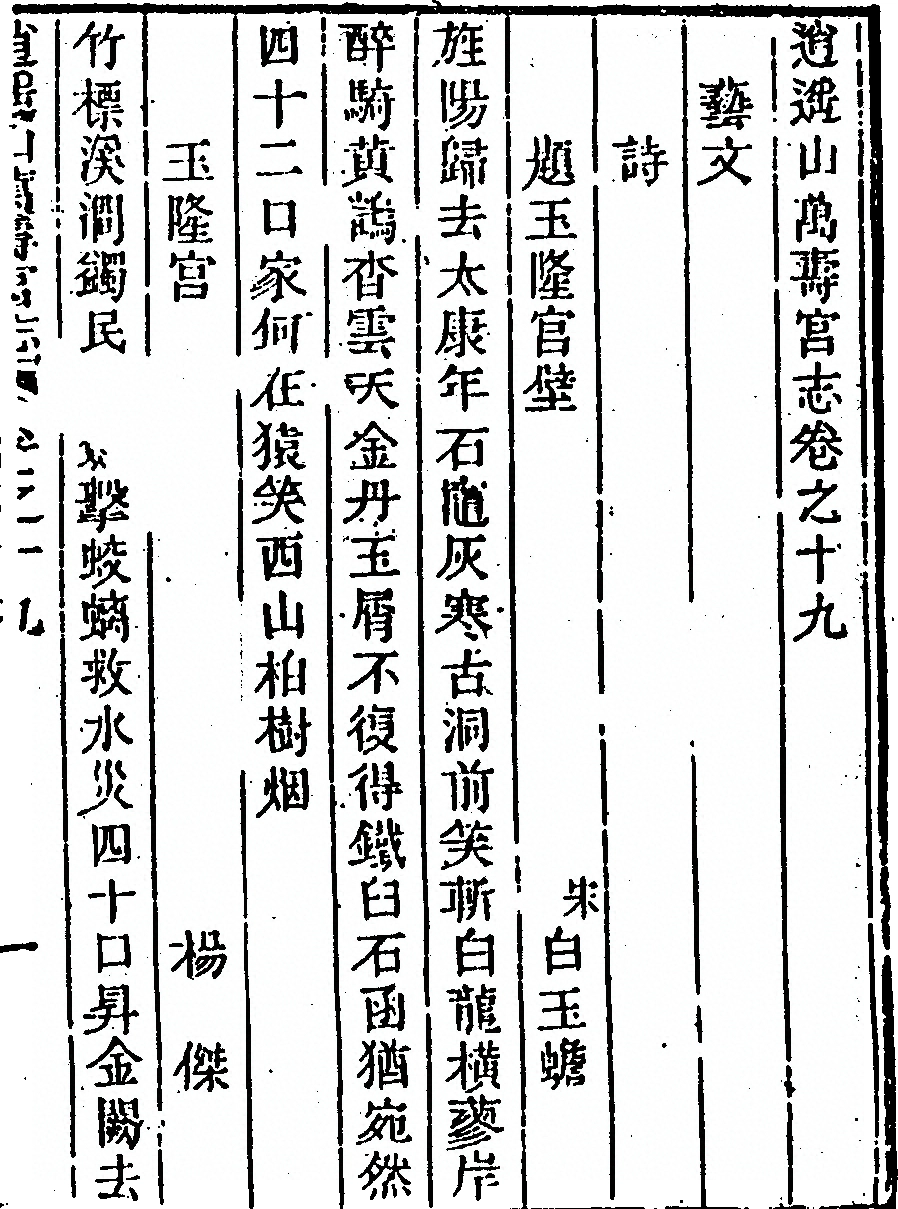 逍遥山萬壽宮志卷之十九
藝文
詩
題玉隆宮壁 宋白玉蟾
旌陽歸去太康年石竈灰寒古洞前笑斬白龍橫蓼岸
醉騎黃鵠杳雲天金丹玉屑不復得鐵臼石函猶宛然
四十二口家何在猿笑西山柏樹烟
玉隆宮 楊傑
竹標溪澗蠲民 擊蛟螭救水災四十口昇金闕去